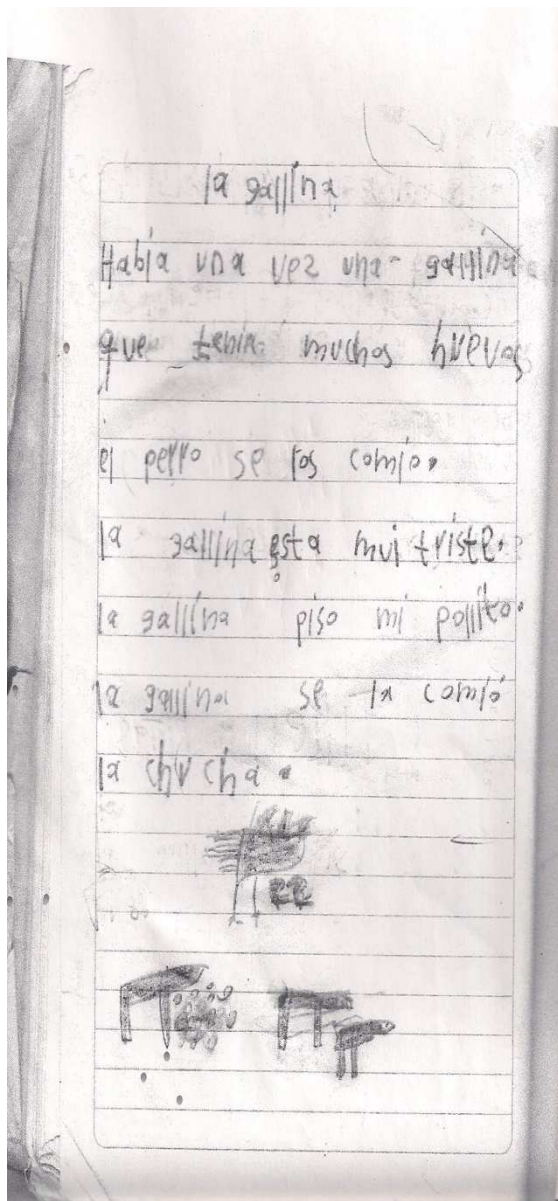 la gallina
Había una vez una gallina
que tenia muchos huevos
el perro se los comio.
la gallina esta mui triste.
la gallina piso mi pollito.
la gallina se la comió
la chucha.